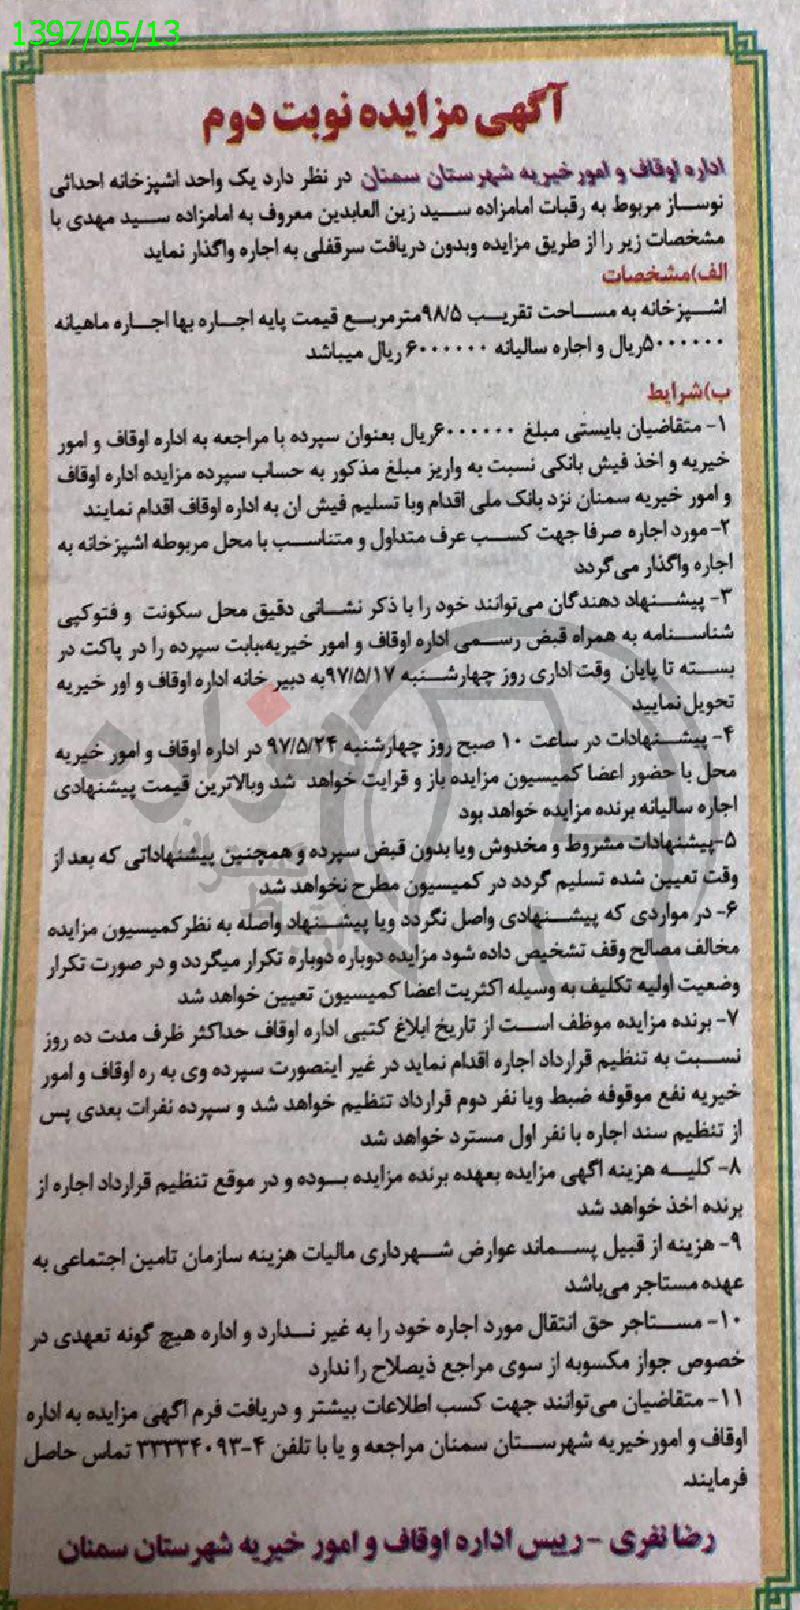 1397/05/13
آگهی مزایده نوبت دوم
اداره اوقاف و امور خیریه شهرستان سمنان در نظر دارد یک واحد اشپزخانه احداثی
نوساز مربوط به رقبات امامزاده سید زین العابدین معروف به امامزاده سید مهدی با
مشخصات زیر را از طریق مزایده وبدون دریافت سرقفلی به اجاره واگذار نماید
الف)مشخصات
اشپزخانه به مساحت تقریب ۹۸/۵مترمربع قیمت پایه اجاره بها اجاره ماهیانه
۵۰۰۰۰۰۰ریال و اجاره سالیانه ۶۰۰۰۰۰۰ ریال میباشد
ب)شرایط
۱- متقاضیان بایستی مبلغ ۶۰۰۰۰۰۰ریال بعنوان سپرده با مراجعه به اداره اوقاف و امور
خیریه و اخذ فیش بانکی نسبت به واریز مبلغ مذکور به حساب سپرده مزایده اداره اوقاف
و امور خیریه سمنان نزد بانک ملی اقدام وبا تسلیم فیش ان به اداره اوقاف اقدام نمایند
۲- مورد اجاره صرفا جهت کسب عرف متداول و متناسب با محل مربوطه اشپزخانه به
اجاره واگذار می‌گردد
۳- پیشنهاد دهندگان می‌توانند خود را با ذکر نشانی دقیق محل سکونت و فتوکپی
شناسنامه به همراه قبض رسمی اداره اوقاف و امور خیریه،بابت سپرده را در پاکت در
بسته تا پایان وقت اداری روز چهارشنبه ۹۷/۵/۱۷به دبیر خانه اداره اوقاف و اور خیریه
تحویل نمایید
۴- پیشنهادات در ساعت ۱۰ صبح روز چهارشنبه ۹۷/۵/۲۴ در اداره اوقاف و امور خیریه
محل با حضور اعضا کمیسیون مزایده باز و قرایت خواهد شد وبالاترین قیمت پیشنهادی
اجاره سالیانه برنده مزایده خواهد بود
۵-پیشنهادات مشروط و مخدوش ویا بدون قبض سپرده و همچنین پیشنهاداتی که بعد از
وقت تعیین شده تسلیم گردد در کمیسیون مطرح نخواهد شد
۶- در مواردی که پیشنهادی واصل نگردد ویا پیشنهاد واصله به نظر کمیسیون مزایده
مخالف مصالح وقف تشخیص داده شود مزایده دوباره دوباره تکرار میگردد و در صورت تکرار
وضعیت اولیه تکلیف به وسیله اکثریت اعضا کمیسیون تعیین خواهد شد
۷- برنده مزایده موظف است از تاریخ ابلاغ کتبی اداره اوقاف حداکثر ظرف مدت ده روز
نسبت به تنظیم قرارداد اجاره اقدام نماید در غیر اینصورت سپرده وی به ره اوقاف و امور
خیریه نفع موقوفه ضبط ویا نفر دوم قرارداد تنظیم خواهد شد و سپرده نفرات بعدی پس
از تنظیم سند اجاره با نفر اول مسترد خواهد شد
۸- کلیه هزینه اگهی مزایده بعهده برنده مزایده بوده و در موقع تنظیم قرارداد اجاره از
برنده اخذ خواهد شد
۹- هزینه از قبیل پسماند عوارض شهرداری مالیات هزینه سازمان تامین اجتماعی به
عهده مستاجر می‌باشد
۱۰- مستاجر حق انتقال مورد اجاره خود را به غیر ندارد و اداره هیچ گونه تعهدی در
خصوص جواز مکسوبه از سوی مراجع ذیصلاح را ندارد
۱۱- متقاضیان می‌توانند جهت کسب اطلاعات بیشتر و دریافت فرم اگهی مزایده به اداره
اوقاف و امورخیریه شهرستان سمنان مراجعه و یا با تلفن ۴-۳۳۳۳۴۰۹۳ تماس حاصل
فرمایند.
رضا نفری - رییس اداره اوقاف و امور خیریه شهرستان سمنان